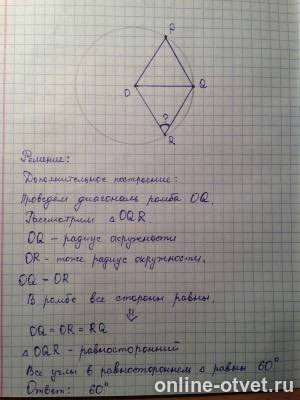 P
O
Q
?
R
Решение:
Дополнительное построение:
Проведем диагональ ромба OQ.
Рассмотрим △OQR.
OQ - радиус окружности
OR - тоже радиус окружности.
OQ = OR
В ромбе все стороны равны.
⇓
OQ = OR = RQ
△OQR - равносторонний
Все углы в равностороннем △ равны 60°
Ответ: 60°
online-otvet.ru